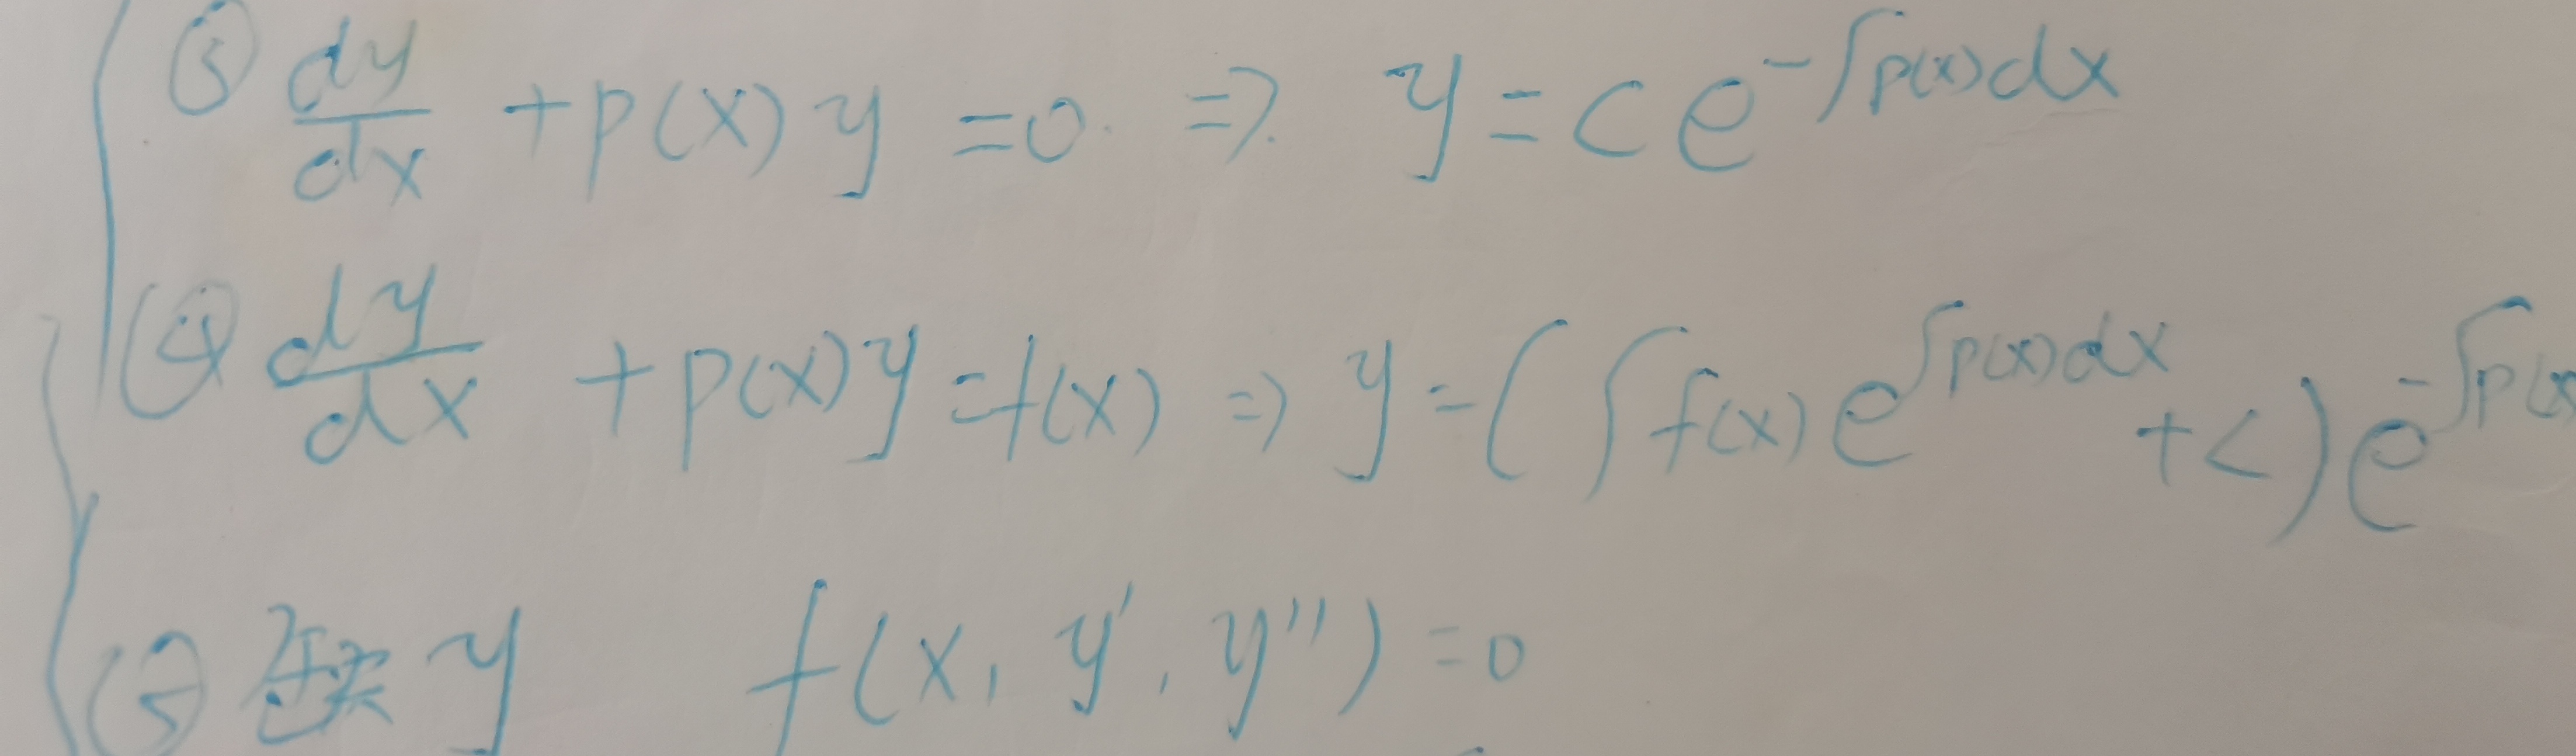 ③ dy/dx + p(x)y = 0 ⇒ y = ce^{-∫p(x)dx}
④ dy/dx + p(x)y = f(x) ⇒ y = (∫f(x)e^{∫p(x)dx} + c)e^{-∫p(x)}
⑤ 缺 y f(x, y', y'') = 0